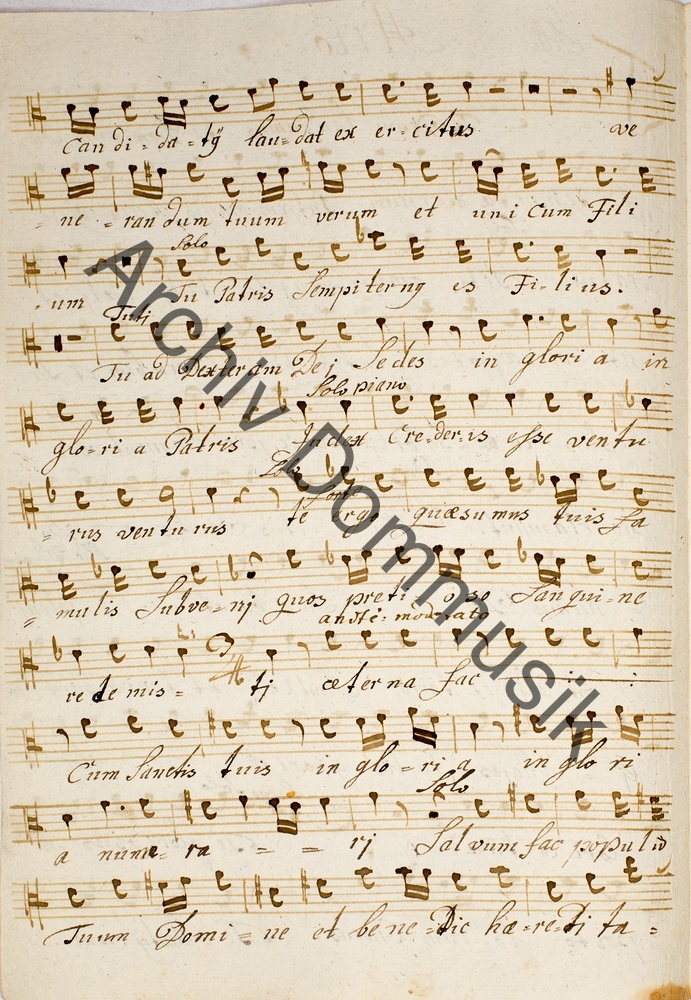 Can di - da - tÿ lau - dat ex er - citus ve
- ne - ran dum tuum verum et uni cum Fili
Solo
um Tu Patris Sempiterng es Fi - li us.
Tuti
Tu ad Dexteram Dej Sedes in glori a in
Solo piano
glo - ri a Patris Judex Cre - der - is esse ventu
Solo fort
- rus ven tu rus te ergo quæsumus tuis fa
- mulis Subve - nj quos preti - o so Sangui - ne
andte: modtato
re de mis - tj æterna fac
3/4
Cum Sanctis tuis in glo - ri a in glo ri
Solo
a nume - ra - - rj Salvum fac populũ
Tuum Domi - ne et be ne - Dic hæ - re - Di ta -
Archiv Dommusik